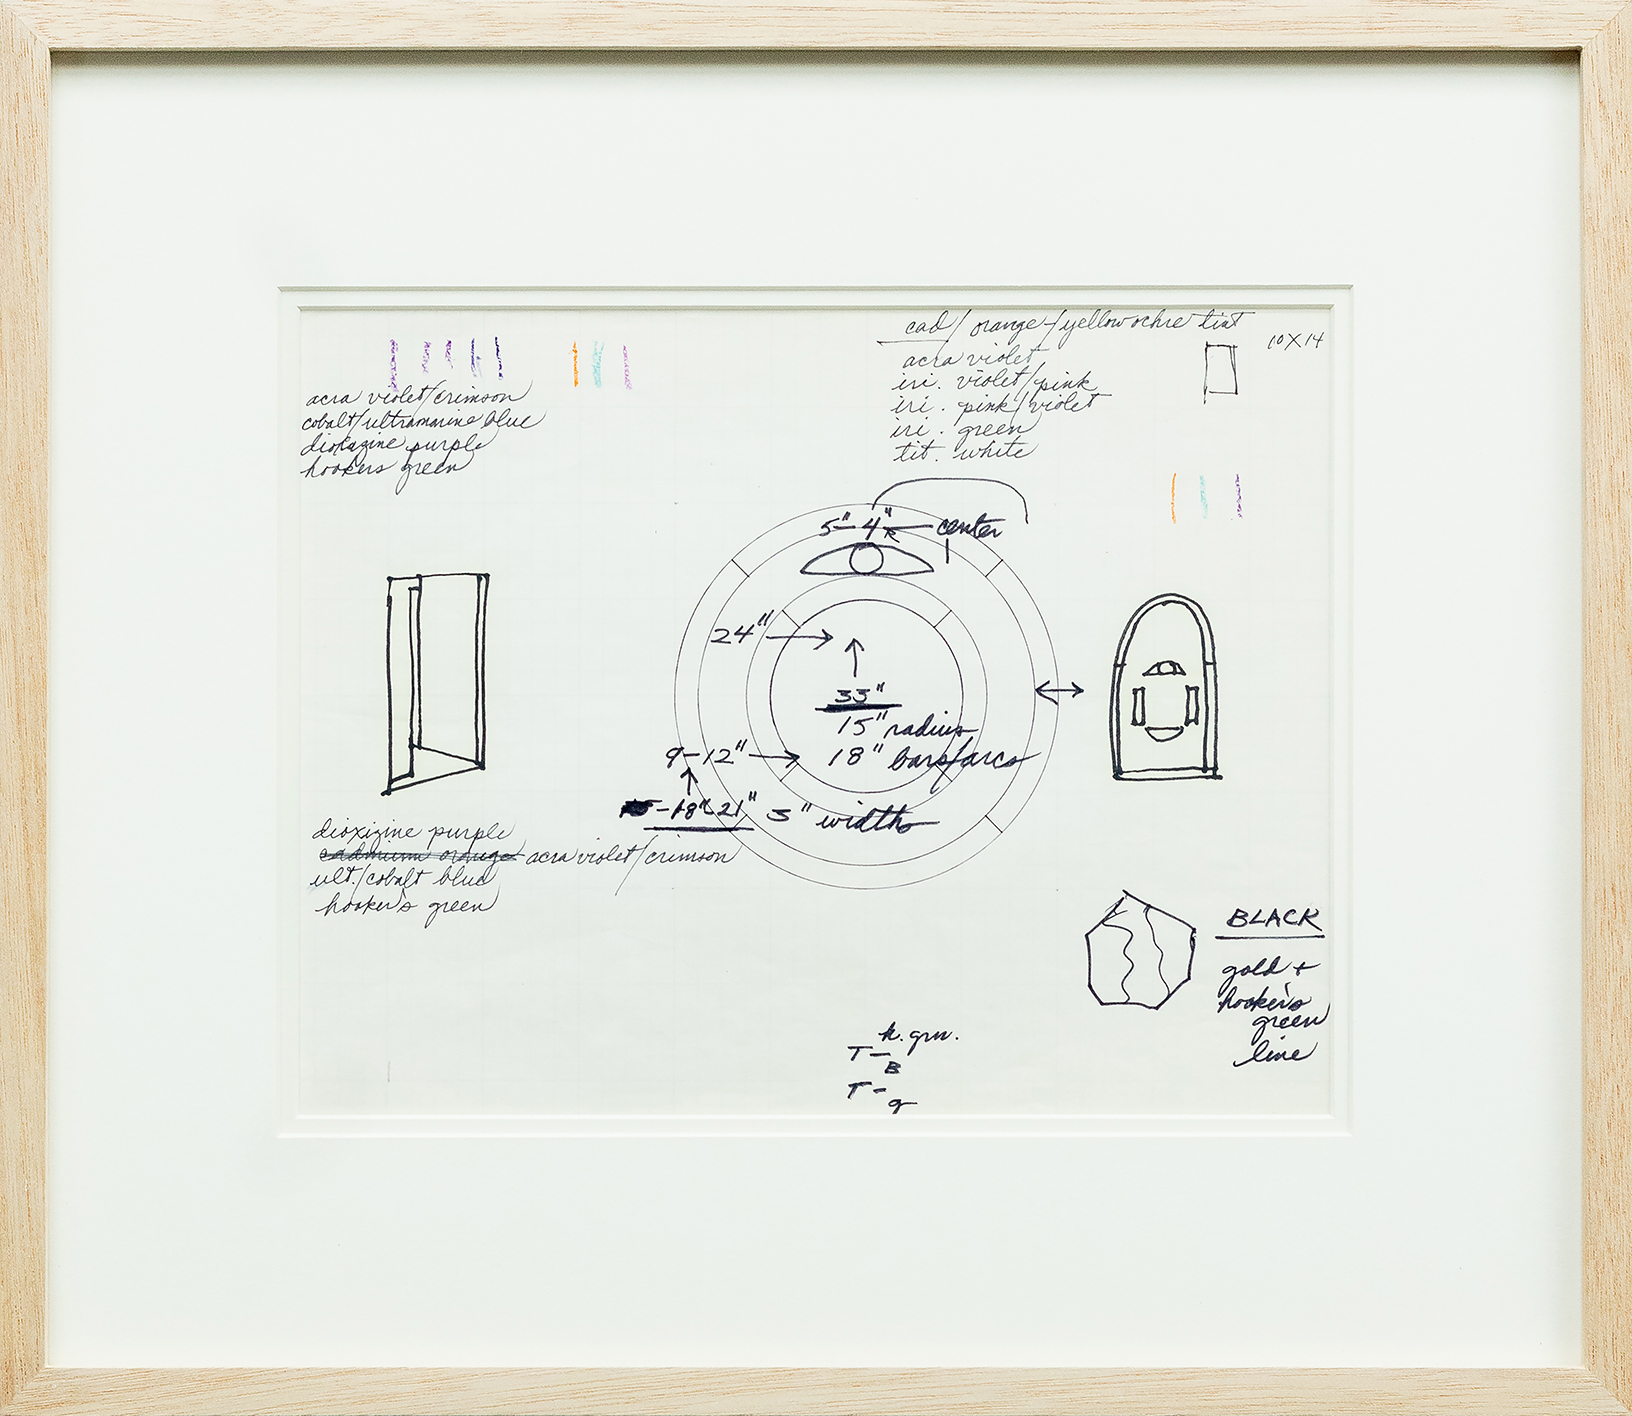 cad/orange/yellow ochre tint
10X14
acra violet
iri. violet/pink
iri. pink/violet
iri. green
tit. white
acra violet/crimson
cobalt/ultramarine blue
dioxazine purple
hookers green
5"-4" center
24"
33"
15" radius
9-12" 18" bars/arcs
-18"-21" 3" widths
dioxizine purple
cadmium orange acra violet/crimson
ult./cobalt blue
hooker's green
BLACK
gold +
hooker's
green
line
h. grn.
T-
B
T-
g